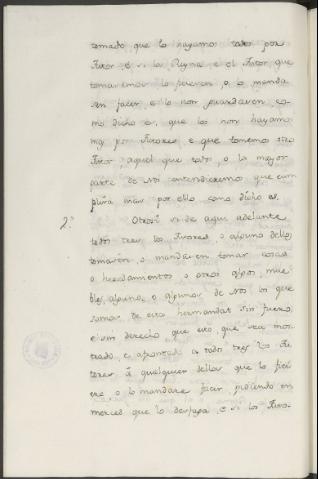 tomado que lo hayamos todos por
Tutor, è si la Reyna e el Tutor, que
tomaremos lo ficieren, o lo manda
sen facer, e lo non guardaren, co
mo dicho es, que los non hayamos
mas por Tutores, e que tomemos otro
Tutor, aquel que todos, o la mayor
parte de Nos entendieremos que cum
plirá mas por ello como dicho es.
2.º Otrosi si de aqui adelante
todos tres los Tutores, o alguno dellos
tomaren, o mandaren tomar cosas
o heredamientos, o otros algos, mue
bles, alguna, o algunas de nos los que
somos de esta hermandat sin fuero,
e sin derecho que esto, que sea mos
trado, e afrontado a todos tres los Tu
tores, ò qualquier dellos que lo ficie
re o lo mandare facer, pidiendo en
merced que lo desfaga, e si los Tuto-